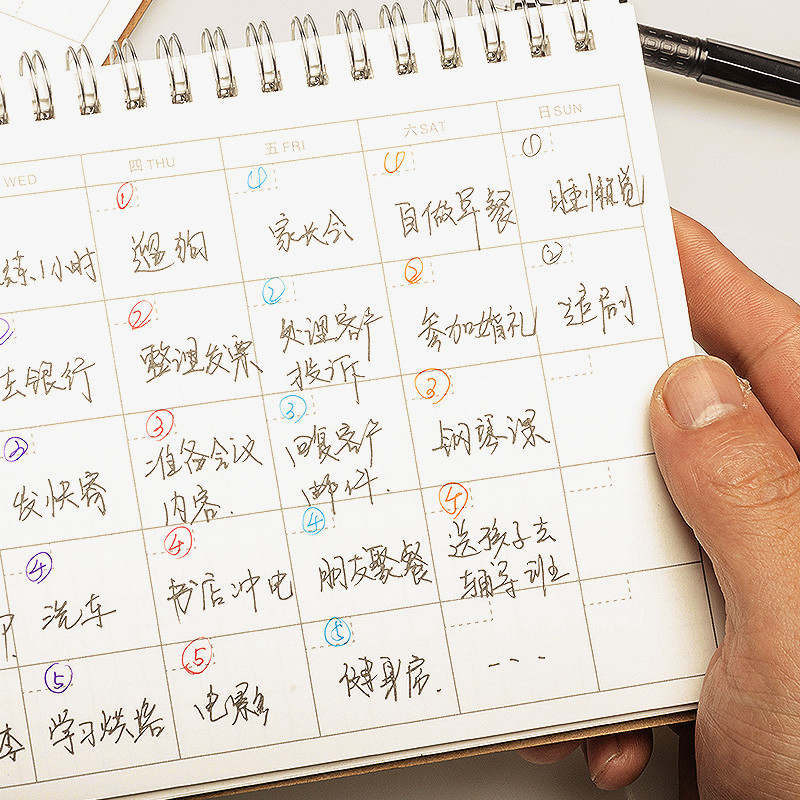 WED 四 THU 五 FRI 六 SAT 日 SUN
① ① ① ①
练1小时 遛狗 家长会 自做早餐 睡懒觉
② ② ② ②
去银行 整理发票 处理客户 参加婚礼 追剧
投诉
③ ③ ③ ③
发快寄 准备会议 回复客户 钢琴课
内容. 邮件.
④ ④ ④ ④
洗车 书店冲电 朋友聚餐 送孩子去
辅导班
⑤ ⑤ ⑤
学习烘焙 电影 健身房. ...